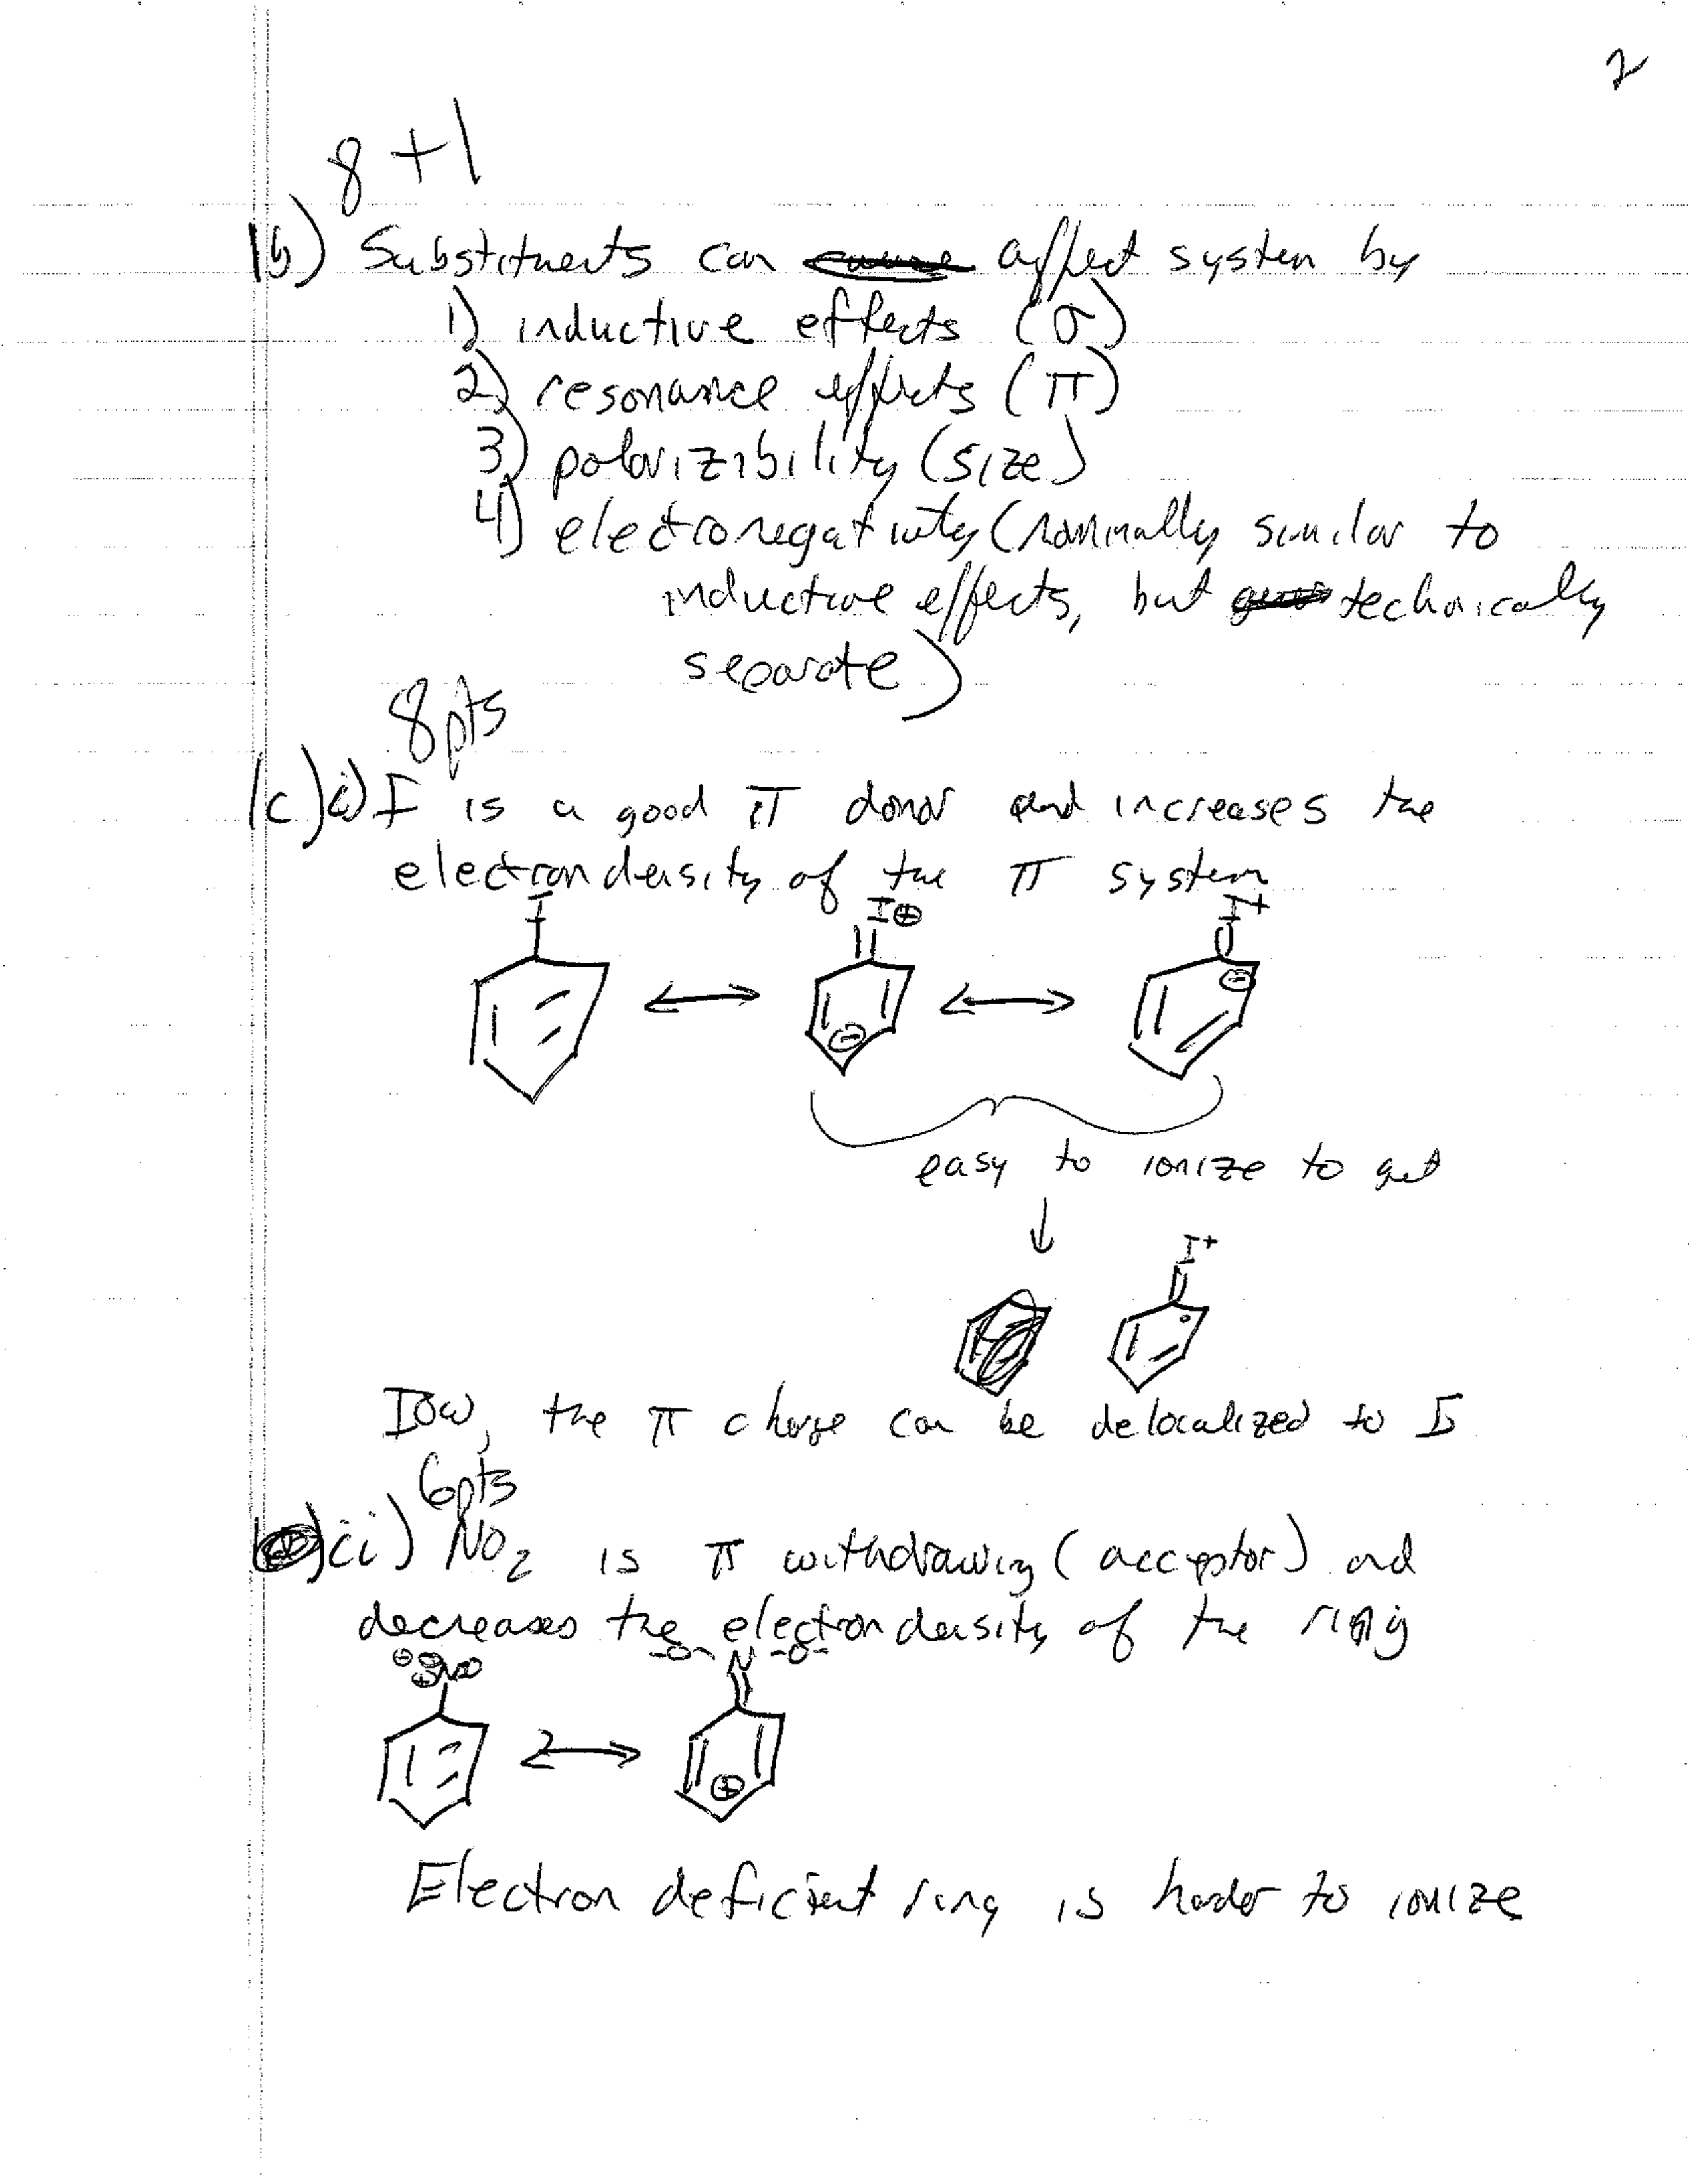 2
8 +1
1b) Substituents can affect system by
1) inductive effects (σ)
2) resonance effects (π)
3) polarizibility (size)
4) electronegativity (normally similar to
inductive effects, but technically
separate)
8pts
1c) i) I is a good π donor and increases the
electron density of the π system
I
I⊕
I+
⊖
⊖
easy to ionize to get
↓
I+
IOW, the π charge can be delocalized to I
6pts
ii) NO2 is π withdrawing (acceptor) and
decreases the electron density of the ring
-O- N -O-
⊕
Electron deficient ring is harder to ionize